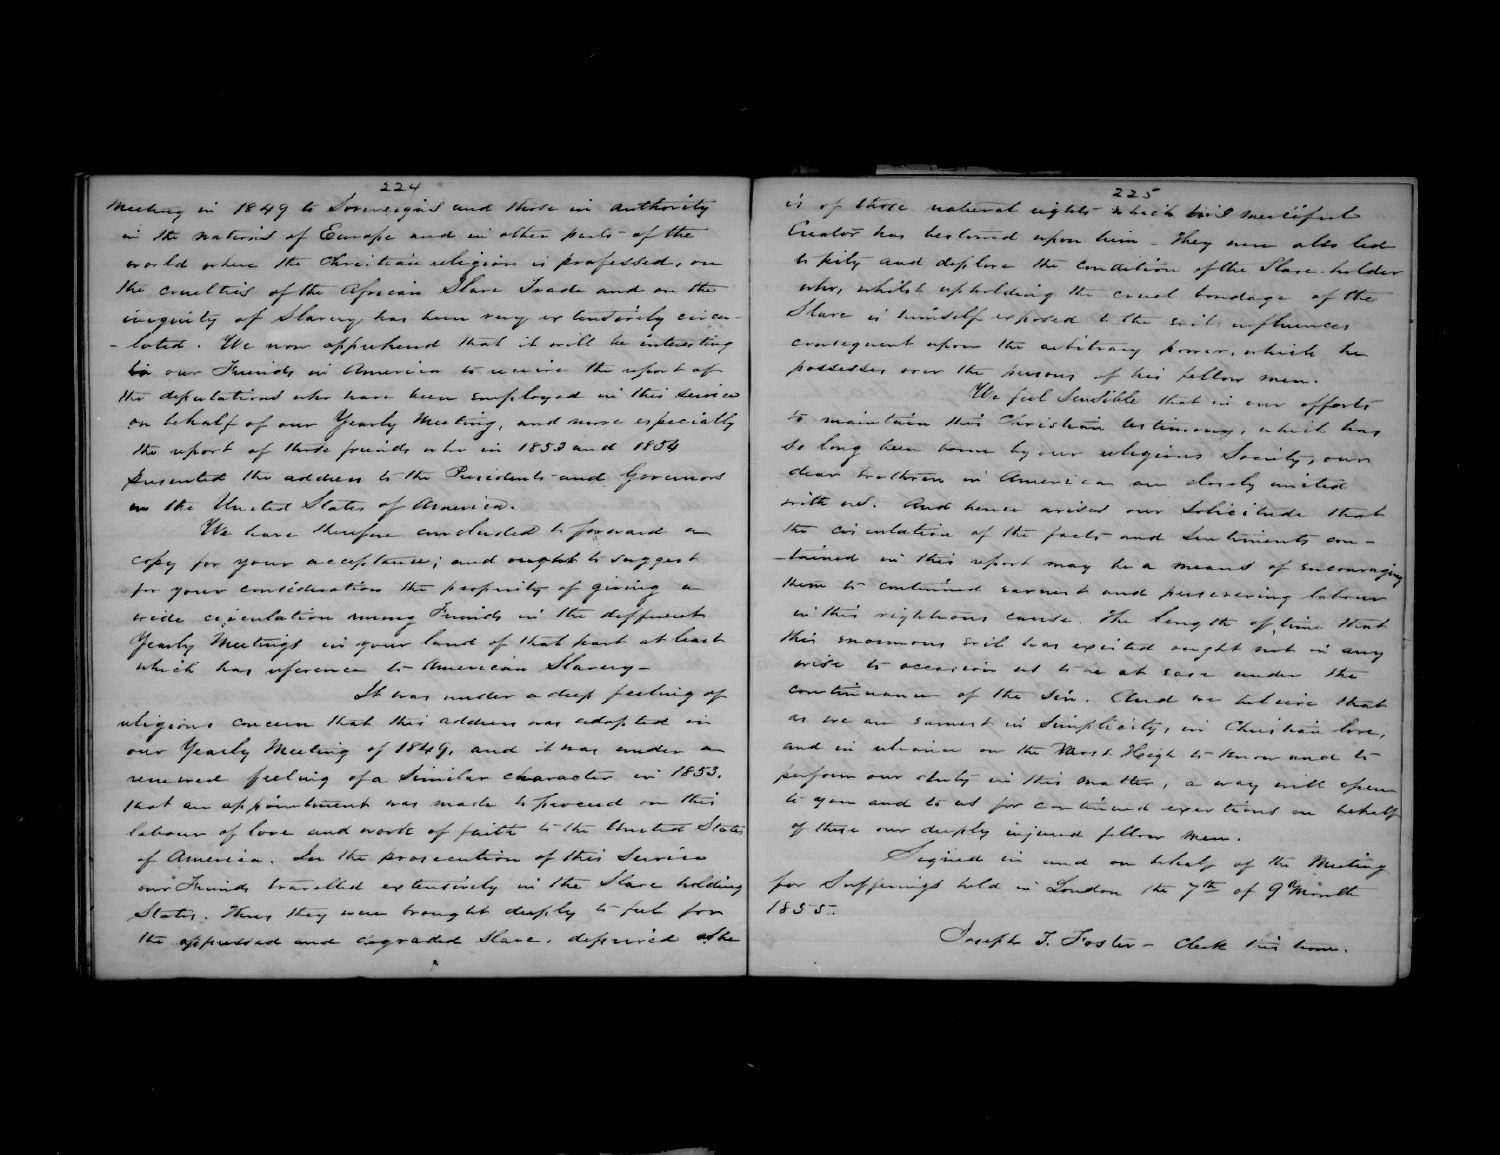 224
Meeting in 1849 to Sovereigns and those in authority
in the nations of Europe and in other parts of the
world where the Christian religion is professed, on
the cruelties of the African Slave Trade and on the
iniquity of Slavery has been very extensively circu-
-lated. We now apprehend that it will be interesting
to our Friends in America to receive the report of
the deputations who have been employed in this service
on behalf of our Yearly Meeting, and more especially
the report of those friends who in 1853 and 1854
presented the address to the Presidents and Governors
in the United States of America.
We have therefore concluded to forward a
copy for your acceptance; and ought to suggest
for your consideration the propriety of giving a
wide circulation among Friends in the different
Yearly Meetings in your land of that part at least
which has reference to American Slavery—
It was under a deep feeling of
religious concern that this address was adopted in
our Yearly Meeting of 1849, and it was under a
renewed feeling of a Similar character in 1853.
that an appointment was made to proceed on this
labour of love and work of faith to the United States
of America. In the prosecution of this Service
our Friends travelled extensively in the Slave holding
States. Thus they were brought deeply to feel for
the oppressed and degraded Slave, deprived as he
225
is of those natural rights which his merciful
Creator has bestowed upon him – They were also led
to pity and deplore the condition of the Slave-holder
who, whilst upholding the cruel bondage of the
Slave is himself exposed to the evil influences
consequent upon the arbitrary power, which he
possesses over the persons of his fellow men.
We feel Sensible that in our efforts
to maintain this Christian testimony, which has
so long been borne by our religious Society, our
dear brethren in America are closely united
with us. And hence arises our Solicitude that
the circulation of the facts and Sentiments con-
-tained in this report may be a means of encouraging
them to continued earnest and persevering labour
in this righteous cause. The length of time that
this enormous evil has existed ought not in any
wise to occasion us to be at ease under the
continuance of the Sin. And we believe that
as we are earnest in Simplicity, in Christian love,
and in reliance on the Most High to know and to
perform our duty in this matter, a way will open
to you and to us for continued exertions on behalf
of these our deeply injured fellow men.
Signed in and on behalf of the Meeting
for Sufferings held in London the 7th of 9th Month
1855.
Joseph T. Foster – Clerk this time.